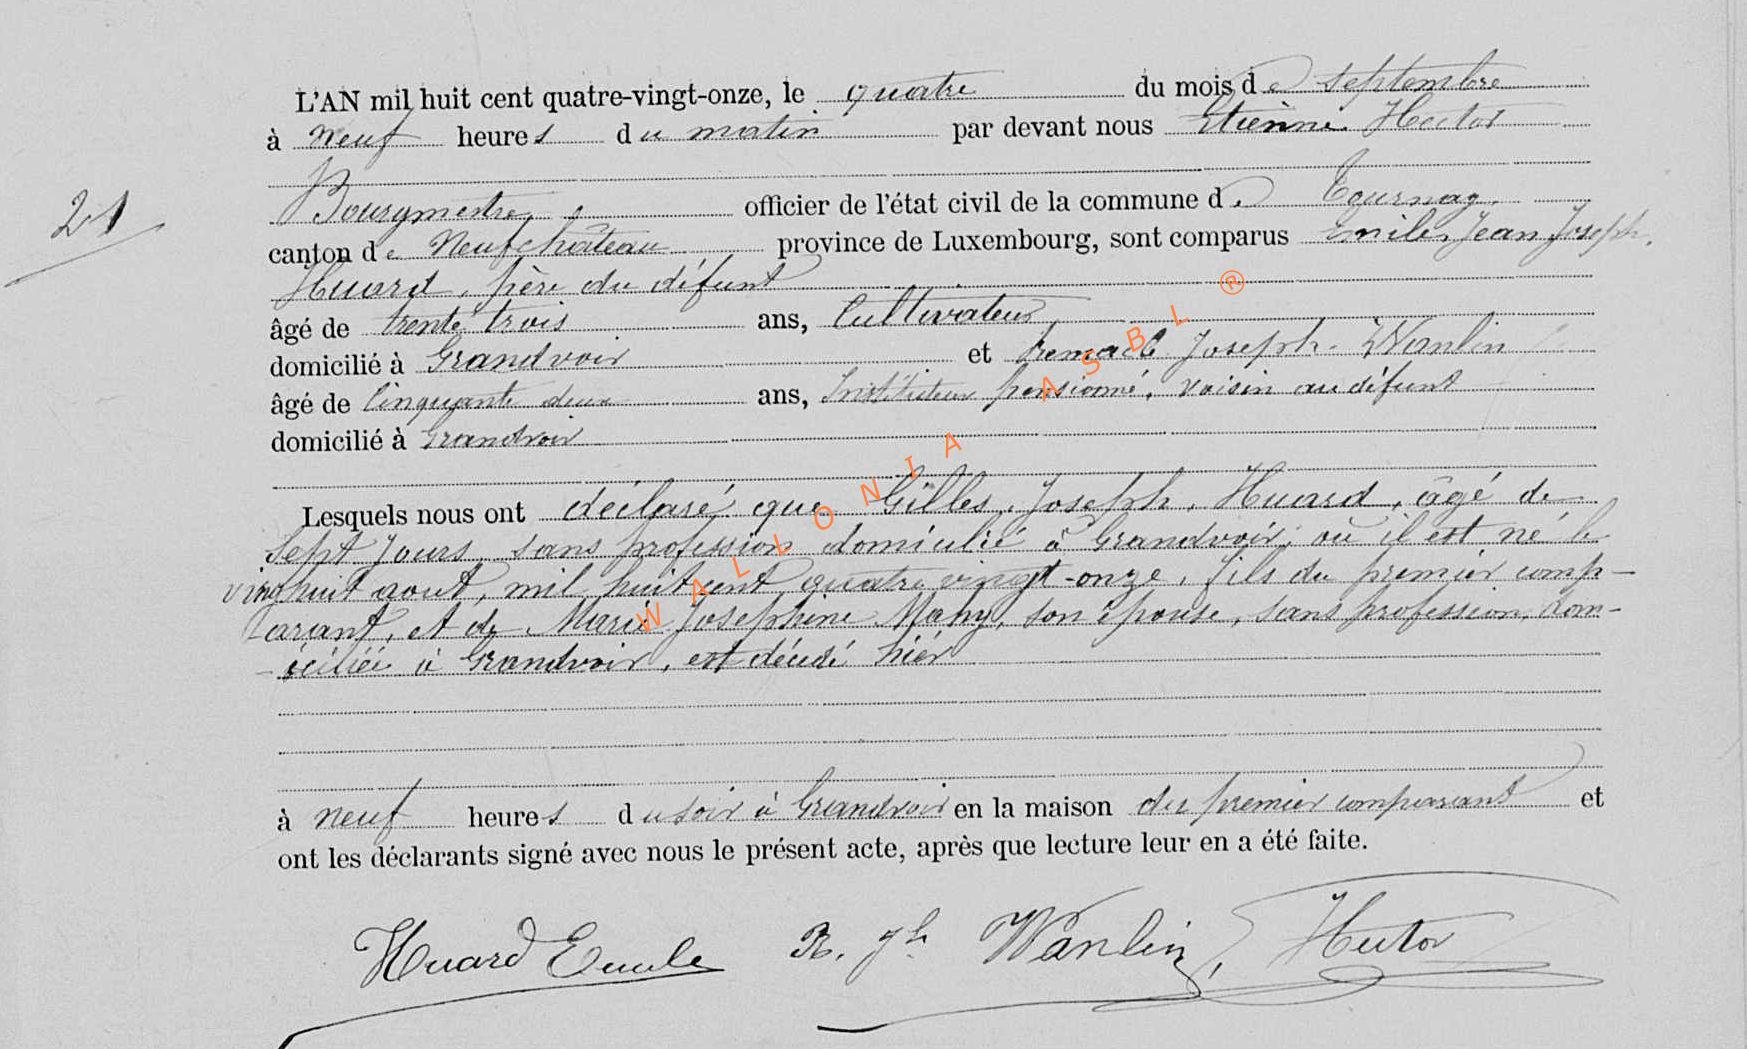 L'AN mil huit cent quatre-vingt-onze, le quatre du mois de septembre
à neuf heures du matin par devant nous Etienne Hector
Bourgmestre officier de l'état civil de la commune de Tournay
21
canton de Neufchâteau province de Luxembourg, sont comparus Emile, Jean Joseph
Huard, père du défunt
âgé de trente trois ans, Cultivateur
domicilié à Grandvoir et Remacle Joseph Wanlin
âgé de Cinquante deux ans, Instituteur pensionné, voisin au défunt
domicilié à Grandvoir
Lesquels nous ont déclaré que Gilles, Joseph, Huard, âgé de
sept jours, sans profession domicilié à Grandvoir, où il est né le
vinghuit aout, mil huit cent quatre vingt-onze, fils du premier comp-
arant, et de Marie Josephine Mahy, son épouse, sans profession, dom-
-iciliée à Grandvoir, est décédé hier
à neuf heures du soir à Grandvoir en la maison du premier comparant et
ont les déclarants signé avec nous le présent acte, après que lecture leur en a été faite.
Huard Emile R. Jh Wanlin, Hector
WALLONIA ASBL ®